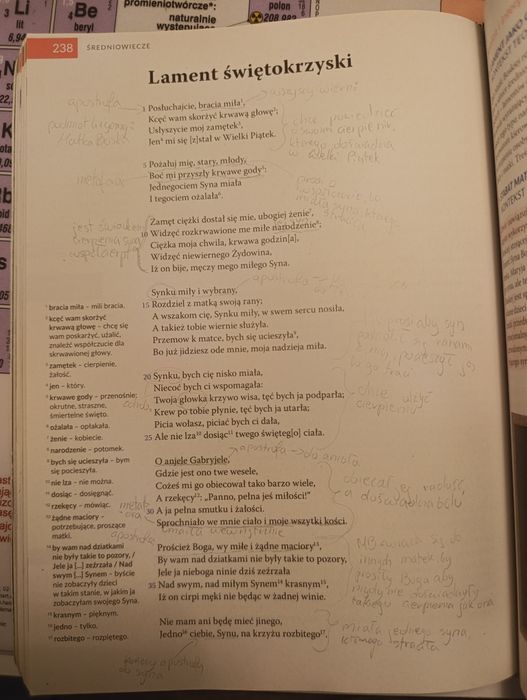 3 Li
lit
6,94
4 Be
beryl
promieniotwórcze*:
naturalnie
polon
238 ŚREDNIOWIECZE
Lament świętokrzyski
apostrofa
podmiot liryczny:
Matka Boska
1 Posłuchajcie, bracia miła¹,
Kcęć wam skorżyć krwawą głowę²;
Usłyszycie mój zamętek³,
Jen⁴ mi się [z]stał w Wielki Piątek.
chce powiedzieć
o swoim cierpieniu,
którego doświadczyła
w Wielki Piątek
5 Pożałuj mię, stary, młody,
Boć mi przyszły krwawe gody⁵;
Jednegociem Syna miała
I tegociem ożalała⁶.
metafora
Zamęt ciężki dostał się mie, ubogiej żenie⁷,
10 Widzęć rozkrwawione me miłe narodzenie⁸;
Ciężka moja chwila, krwawa godzin[a],
Widzęć niewiernego Żydowina,
Iż on bije, męczy mego miłego Syna.
jest świadkiem
cierpienia syna
Synku miły i wybrany,
15 Rozdziel z matką swoją rany;
A wszakom cię, Synku miły, w swem sercu nosiła,
A takież tobie wiernie służyła.
Przemow k matce, bych się ucieszyła⁹,
Bo już jidziesz ode mnie, moja nadzieja miła.
20 Synku, bych cię nisko miała,
Niecoć bych ci wspomagała:
Twoja główka krzywo wisa, tęć bych ja podparła;
Krew po tobie płynie, tęć bych ja utarła;
Picia wołasz, piciać bych ci dała,
25 Ale nie lza¹⁰ dosiąc¹¹ twego święteg[o] ciała.
chce ulżyć
cierpieniu
O anjele Gabryjele,
Gdzie jest ono twe wesele,
Cożeś mi go obiecował tako barzo wiele,
A rzekęcy¹²: „Panno, pełna jeś miłości!”
30 A ja pełna smutku i żałości.
Sprochniało we mnie ciało i moje wszytki kości.
apostrofa do anioła
obiecał jej radość,
a doświadcza bólu
Prościez Boga, wy miłe i żądne maciory¹³,
By wam nad dziatkami nie były takie to pozory,
Jele ja nieboga ninie dziś zeźrzała
35 Nad swym, nad miłym Synem¹⁴ krasnym¹⁵,
Iż on cirpi męki nie będąc w żadnej winie.
Nie mam ani będę mieć jinego,
Jedno¹⁶ ciebie, Synu, na krzyżu rozbitego¹⁷.
miała jednego syna
którego straciła
¹ bracia miła – mili bracia.
² kcęć wam skorżyć
krwawą głowę – chcę się
wam poskarżyć, użalić,
znaleźć współczucie dla
skrwawionej głowy.
³ zamętek – cierpienie,
żałość.
⁴ jen – który.
⁵ krwawe gody – przenośnie;
okrutne, straszne,
śmiertelne święto.
⁶ ożalała – opłakała.
⁷ żenie – kobiecie.
⁸ narodzenie – potomek.
⁹ bych się ucieszyła – bym
się pocieszyła.
¹⁰ nie lza – nie można.
¹¹ dosiąc – dosięgnąć.
¹² rzekęcy – mówiąc.
¹³ żądne maciory –
potrzebujące, proszące
matki.
¹⁴ by wam nad dziatkami
nie były takie to pozory, /
Jele ja [...] zeźrzała / Nad
swym [...] Synem – byście
nie zobaczyły dzieci
w takim stanie, w jakim ja
zobaczyłam swojego Syna.
¹⁵ krasnym – pięknym.
¹⁶ jedno – tylko.
¹⁷ rozbitego – rozpiętego.